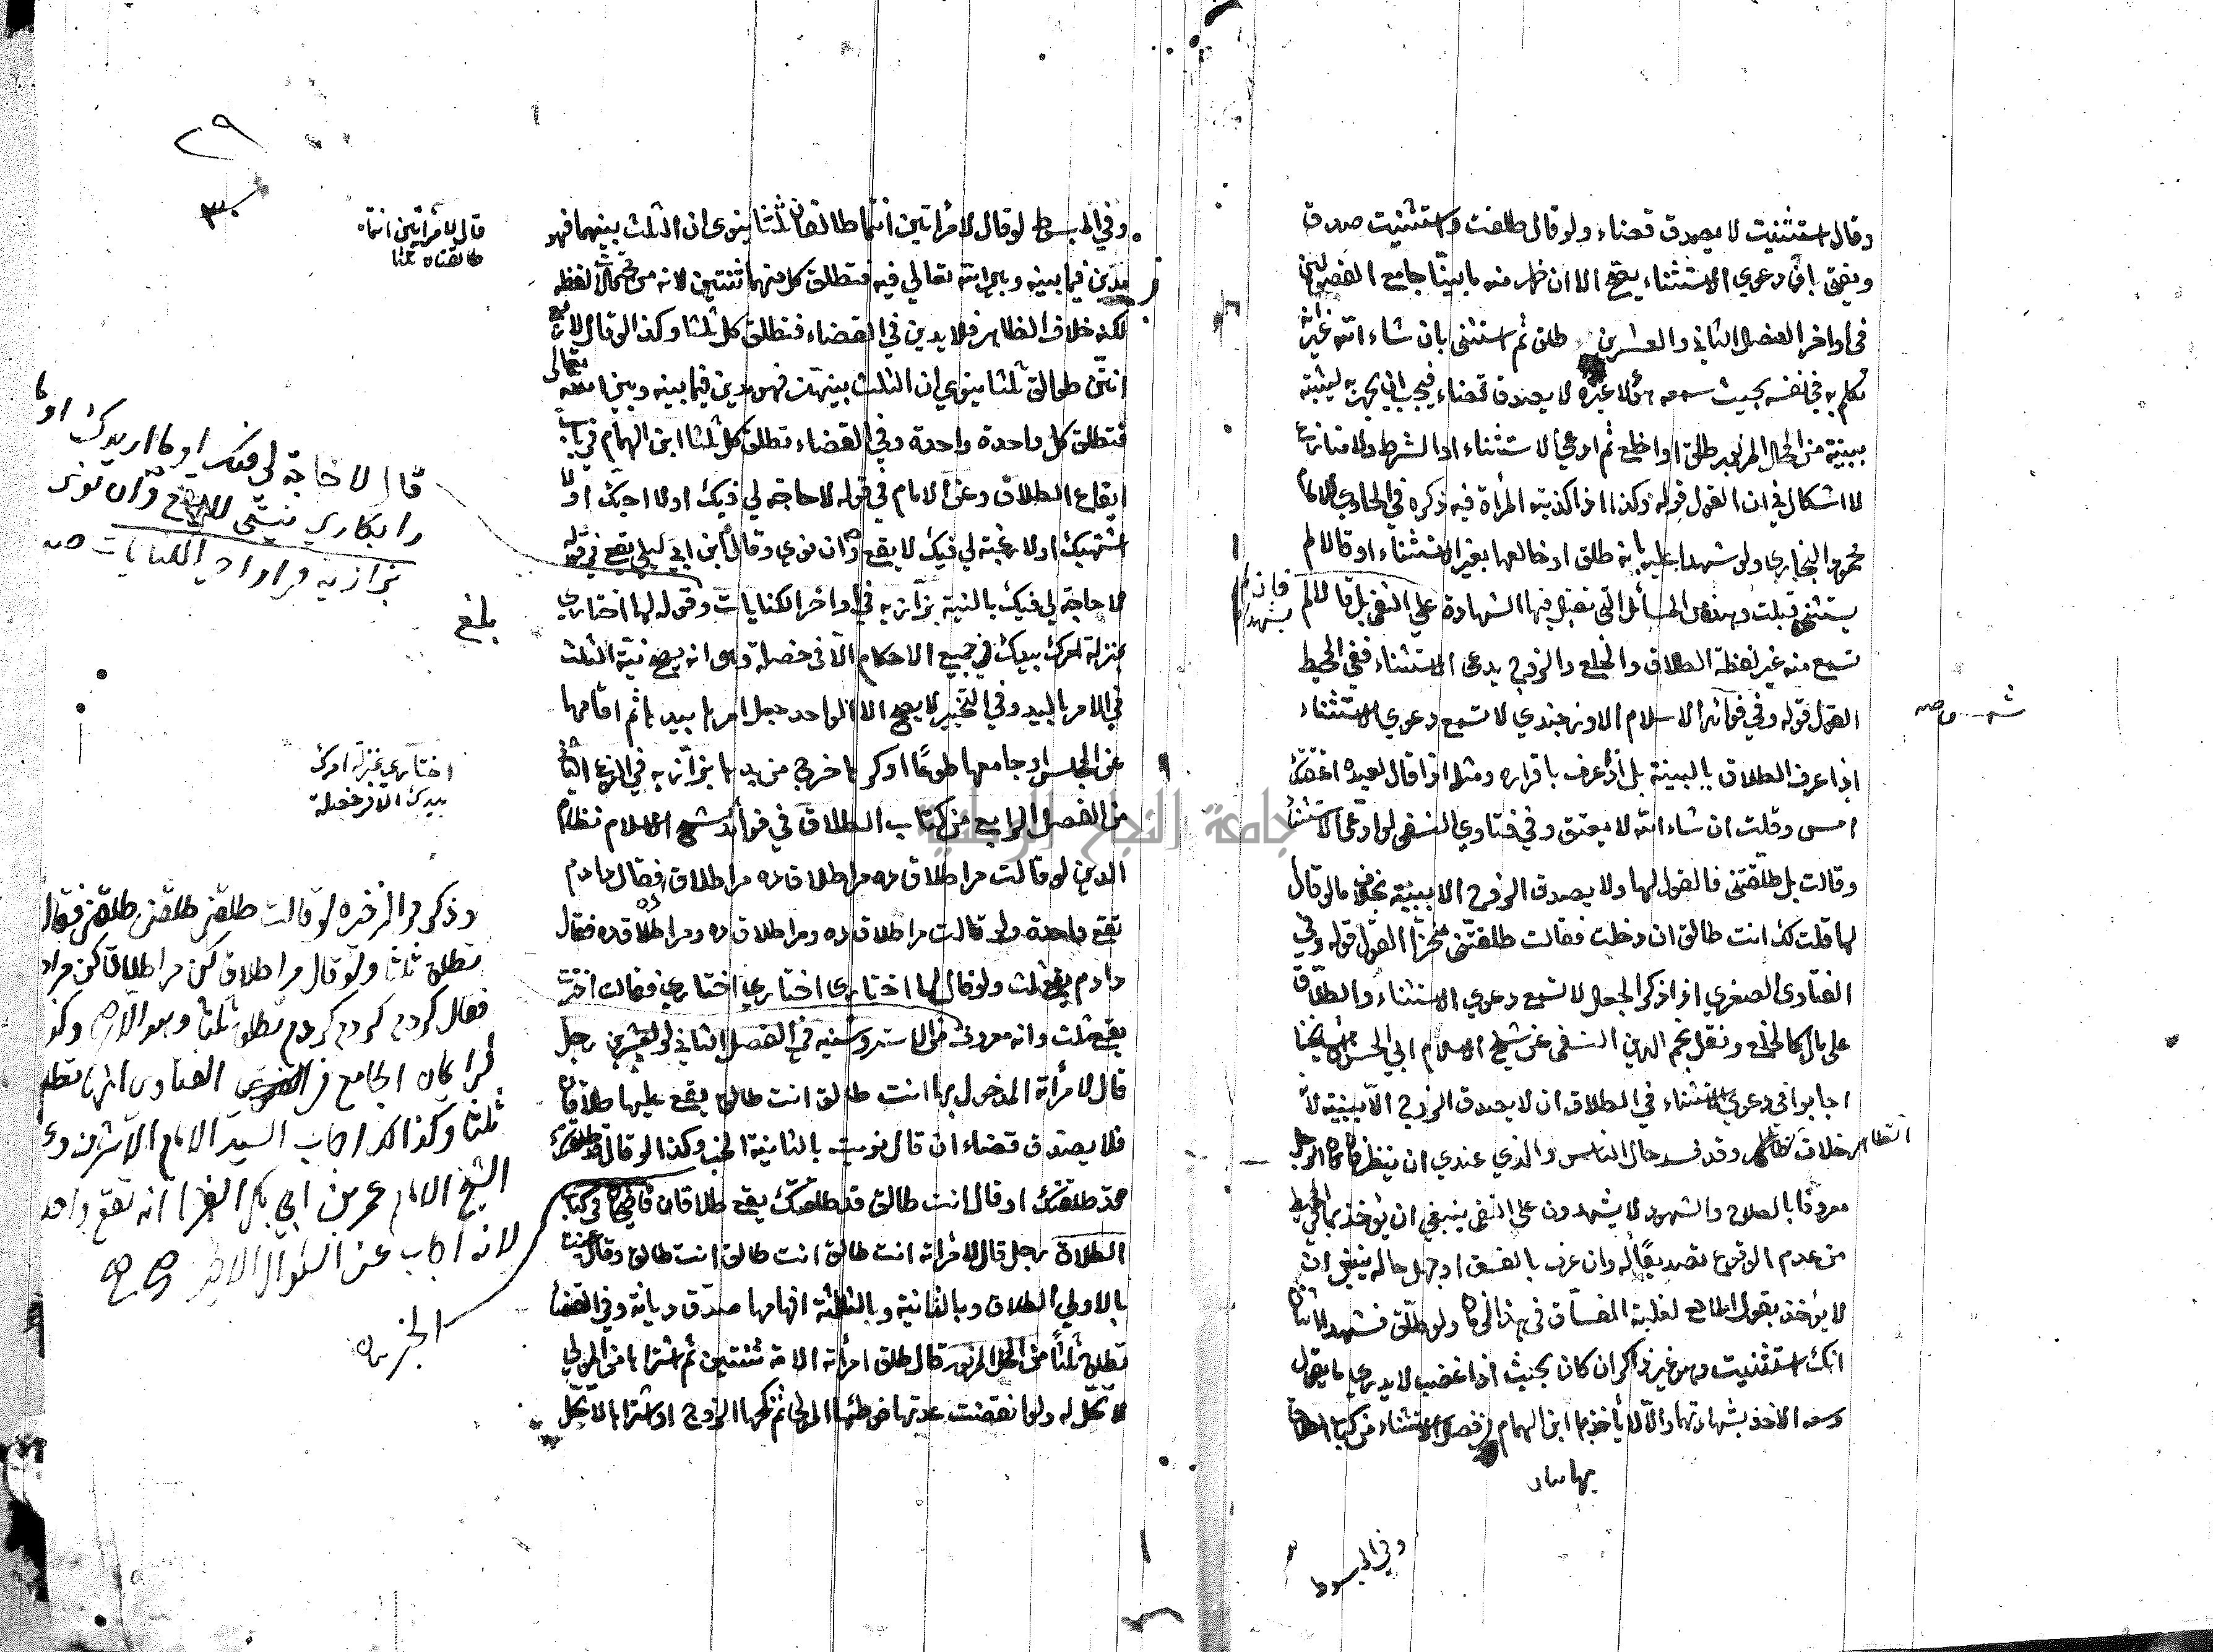 وقال استثنيت لا يصدق قضاء ولو قال طلقت واستثنيت صدق
ويفتى بان دعوى الاستثناء يصح الا ان ظهر منه ما بينا جامع الفصولين
في اواخر الفصل الثاني والعشرين طلق ثم استثنى بان شاء الله
تكلم به في نفسه بحيث سمعه هو لا غيره لا يصدق قضاء فيجب ان يجهر به ليثبته
ببينة من المحل المزبور طلق او اخلع ثم ادعى الاستثناء او الشرط ولا منازع
لا اشكال في ان القول قوله وكذا اذا كذبته المرأة فيه ذكره في الحاوي للامام
محمود البخاري ولو شهدا عليه بانه طلق او خالعها بغير الاستثناء او قالا لم
يستثن قبلت وهذه من المسائل التي تقبل فيها الشهادة على النفي بل قالا لم
فان لم يشهدا
نسمع منه غير لفظة الطلاق والخلع والزوج يدعي الاستثناء ففي المحيط
القول قوله وفي فوائد شمس الاسلام الاوزجندي لا تسمع دعوى الاستثناء
اذا عرف الطلاق بالبينة بل اذا عرف باقراره ومثله اذا قال لعبده اعتقتك
امس وقلت ان شاء الله لا يعتق وفي فتاوي النسفي لو ادعى الاستثناء
وقالت بل طلقتني فالقول لها ولا يصدق الزوج الا ببينة بخلاف ما لو قال
لها قلت لك انت طالق ان دخلت فقالت طلقتني منجزا القول قوله وفي
الفتاوى الصغرى اذا ذكر الجعل لا تسمع دعوى الاستثناء والطلاق
على مال كالخلع ونقل نجم الدين النسفي عن شيخ الاسلام ابي الحسن ان مشايخنا
اجابوا في دعوى الاستثناء في الطلاق ان لا يصدق الزوج الا ببينة لانه
خلاف الظاهر وقد فسد حال الناس والذي عندي ان ينظر فان كان الرجل
معروفا بالصلاح والشهود لا يشهدون على النفي ينبغي ان يؤخذ بما في المحيط
من عدم الوقوع تصديقا له وان عرف بالفسق او جهل حاله ينبغي ان
لا يؤخذ بقول المانع لغلبة الفساق في هذا الزمان ولو طلق فشهد اثنان
انك استثنيت وهو غير ذاكر ان كان بحيث اذا غضب لا يدري ما يقول
وسعه الاخذ بشهادتهما والا لا يأخذ بها ابن الهمام في فصل الاستثناء من كتاب الطلاق
وفي المبسوط
٢٩
٣٠
وفي المبسوط لو قال لامرأتين انتما طالقان ثلثا ينوي ان الثلث بينهما فهو
مدين فيما بينه وبين الله تعالى فيه فتطلق كل منهما ثنتين لانه من محتمل لفظه
لكنه خلاف الظاهر فلا يدين في القضاء فتطلق كل ثلثا وكذا لو قال لاربع
انتن طوالق ثلثا ينوي ان الثلث بينهن فهو مدين فيما بينه وبين الله تعالى
فتطلق كل واحدة واحدة وفي القضاء تطلق كل ثلثا ابن الهمام في باب
ايقاع الطلاق وعن الامام في قوله لا حاجة لي فيك اولا احبك اولا
اشتهيك اولا رغبة لي فيك لا يقع وان نوى وقال ابن ابي ليلى يقع في قوله
لا حاجة لي فيك بالنية بزازيه في اواخر الكنايات وقوله لها اختاري
بمنزلة امرك بيدك في جميع الاحكام الا في خصلة وهي انه يصح نية الثلث
في الامر باليد وفي التخيير لا يصح الا الواحد جعل امرها بيدها ثم اقامها
عن المجلس او جامعها طوعا او كرها خرج من يدها بزازيه في النوع الثاني
من الفصل الرابع من كتاب الطلاق في فوائد شيخ الاسلام نظام
الدين لو قالت مرا طلاق ده مرا طلاق ده مرا طلاق ده فقال دادم
تقع واحدة ولو قالت مرا طلاق ده ومرا طلاق ده ومرا طلاق ده فقال
دادم يقع ثلث ولو قال لها اختاري اختاري اختاري فقالت اخترت
يقع ثلث وانه معروف من الاستروشنيه في الفصل الثاني والعشرين رجل
قال لامرأته المدخول بها انت طالق انت طالق يقع عليها طلاقان
فلا يصدق قضاء ان قال نويت بالثانية الخبر وكذا لو قال قد طلقتك
قد طلقتك او قال انت طالق قد طلقتك يقع طلاقان قاضيخان في كتاب
الطلاق رجل قال لامرأته انت طالق انت طالق انت طالق وقال عنيت
بالاولى الطلاق وبالثانية وبالثالثة افهامها صدق ديانة وفي القضاء
تطلق ثلثا من المحل المزبور قال طلق امرأته الامة ثنتين ثم اشتراها من المولى
لا تحل له ولو انقضت عدتها فوطئها المولى ثم نكحها الزوج او اشتراها لا تحل
قال لامرأتين انتما
طالقتان ثلثا
قال لا حاجة لي فيك او ما اريدك او ما
بزازيه في اواخر الكنايات صه
بلغ
اختاري بمنزلة امرك
بيدك الا في خصلة
وذكر في الذخيره لو قالت طلقني طلقني طلقني فقال
تطلق ثلثا ولو قال مرا طلاق كن مرا طلاق كن مرا
فقال كردم كردم كردم تطلق ثلثا وهو الاصح وكذا
ثلثا وكذا اجاب السيد الامام الاشرف وعن
الشيخ الامام عمر بن ابي بكر انه تقع واحدة
لانه اجاب عن السؤال الاخير